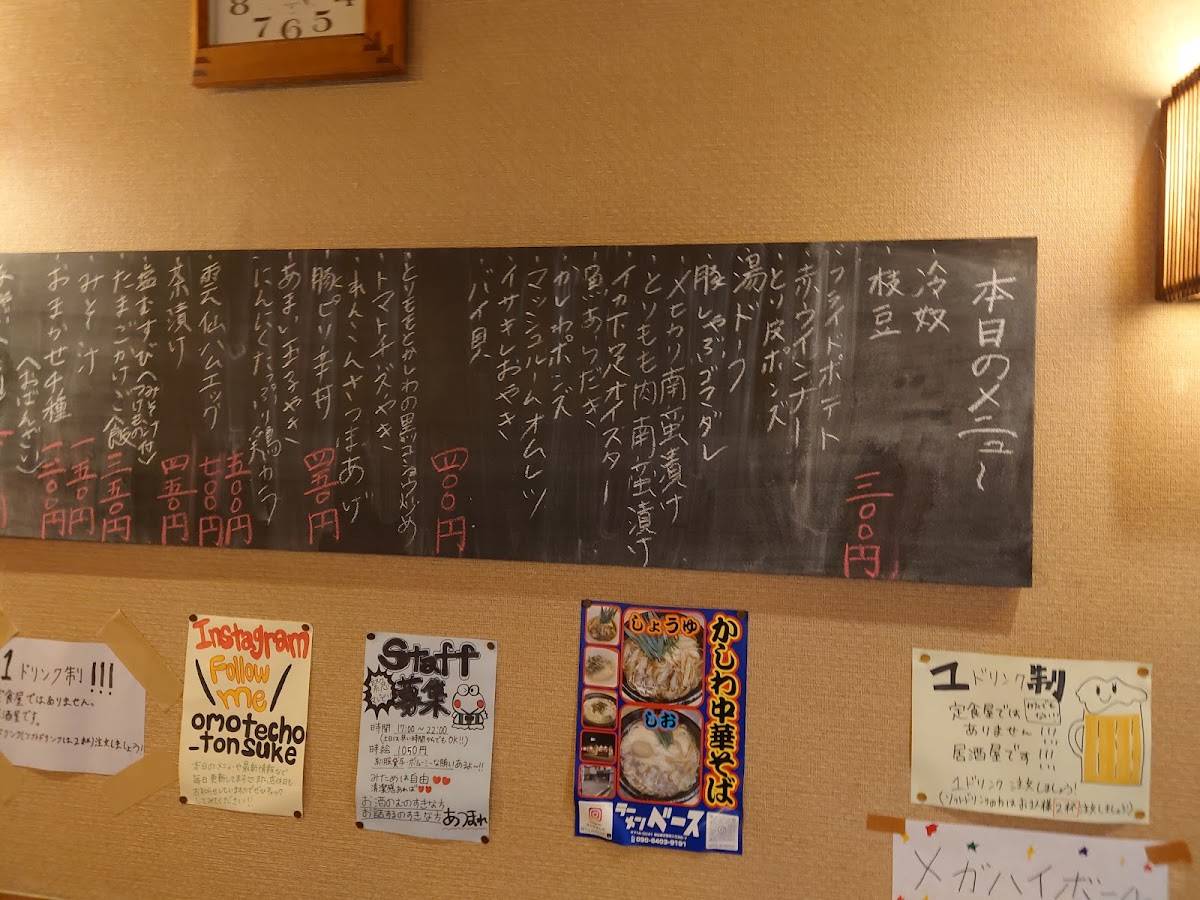 8 7 6 5 4
本日のメニュー
・冷奴
・枝豆
三〇〇円
・フライドポテト
・赤ウインナー
・とり皮ポンズ
・湯ドーフ
・豚しゃぶゴマダレ
・メヒカリ南蛮漬け
・とりもも肉南蛮漬け
・イカ下足オイスター
・魚あらだき
・かしわポンズ
・マッシュルームオムレツ
・イサキしおやき
・バイ貝
四〇〇円
・とりももとかしわの黒コショウ炒め
・トマトチーズやき
・れんこんさつまあげ
・豚ピリ辛丼
四五〇円
・あまい玉子やき
・にんにくたっぷり鶏
五〇〇円
雲仙ハムエッグ
七〇〇円
茶漬け
四五〇円
・塩むすび
・たまごかけご飯
三五〇円
・みそ汁
一五〇円
・おまかせ4種
(おばんざい)
一二〇〇円
1ドリンク制!!!
定食屋ではありません。
居酒屋です。
Instagram
Follow
me
omotecho
-tonsuke
本日のメニューや最新情報など
Staff
募集
時間 17:00〜22:00
時給 1050円
みためは自由
清潔感あれば
お酒のむのすきな方
お話するのすきな方 あつまれ
かしわ中華そば
しょうゆ
しお
ラーメンベース
1ドリンク制
定食屋では
ありません!!!
居酒屋です!!!
1ドリンク注文しましょう!
(ソフトドリンクの方はお1人様2杯注文しましょう)
メガハイボール